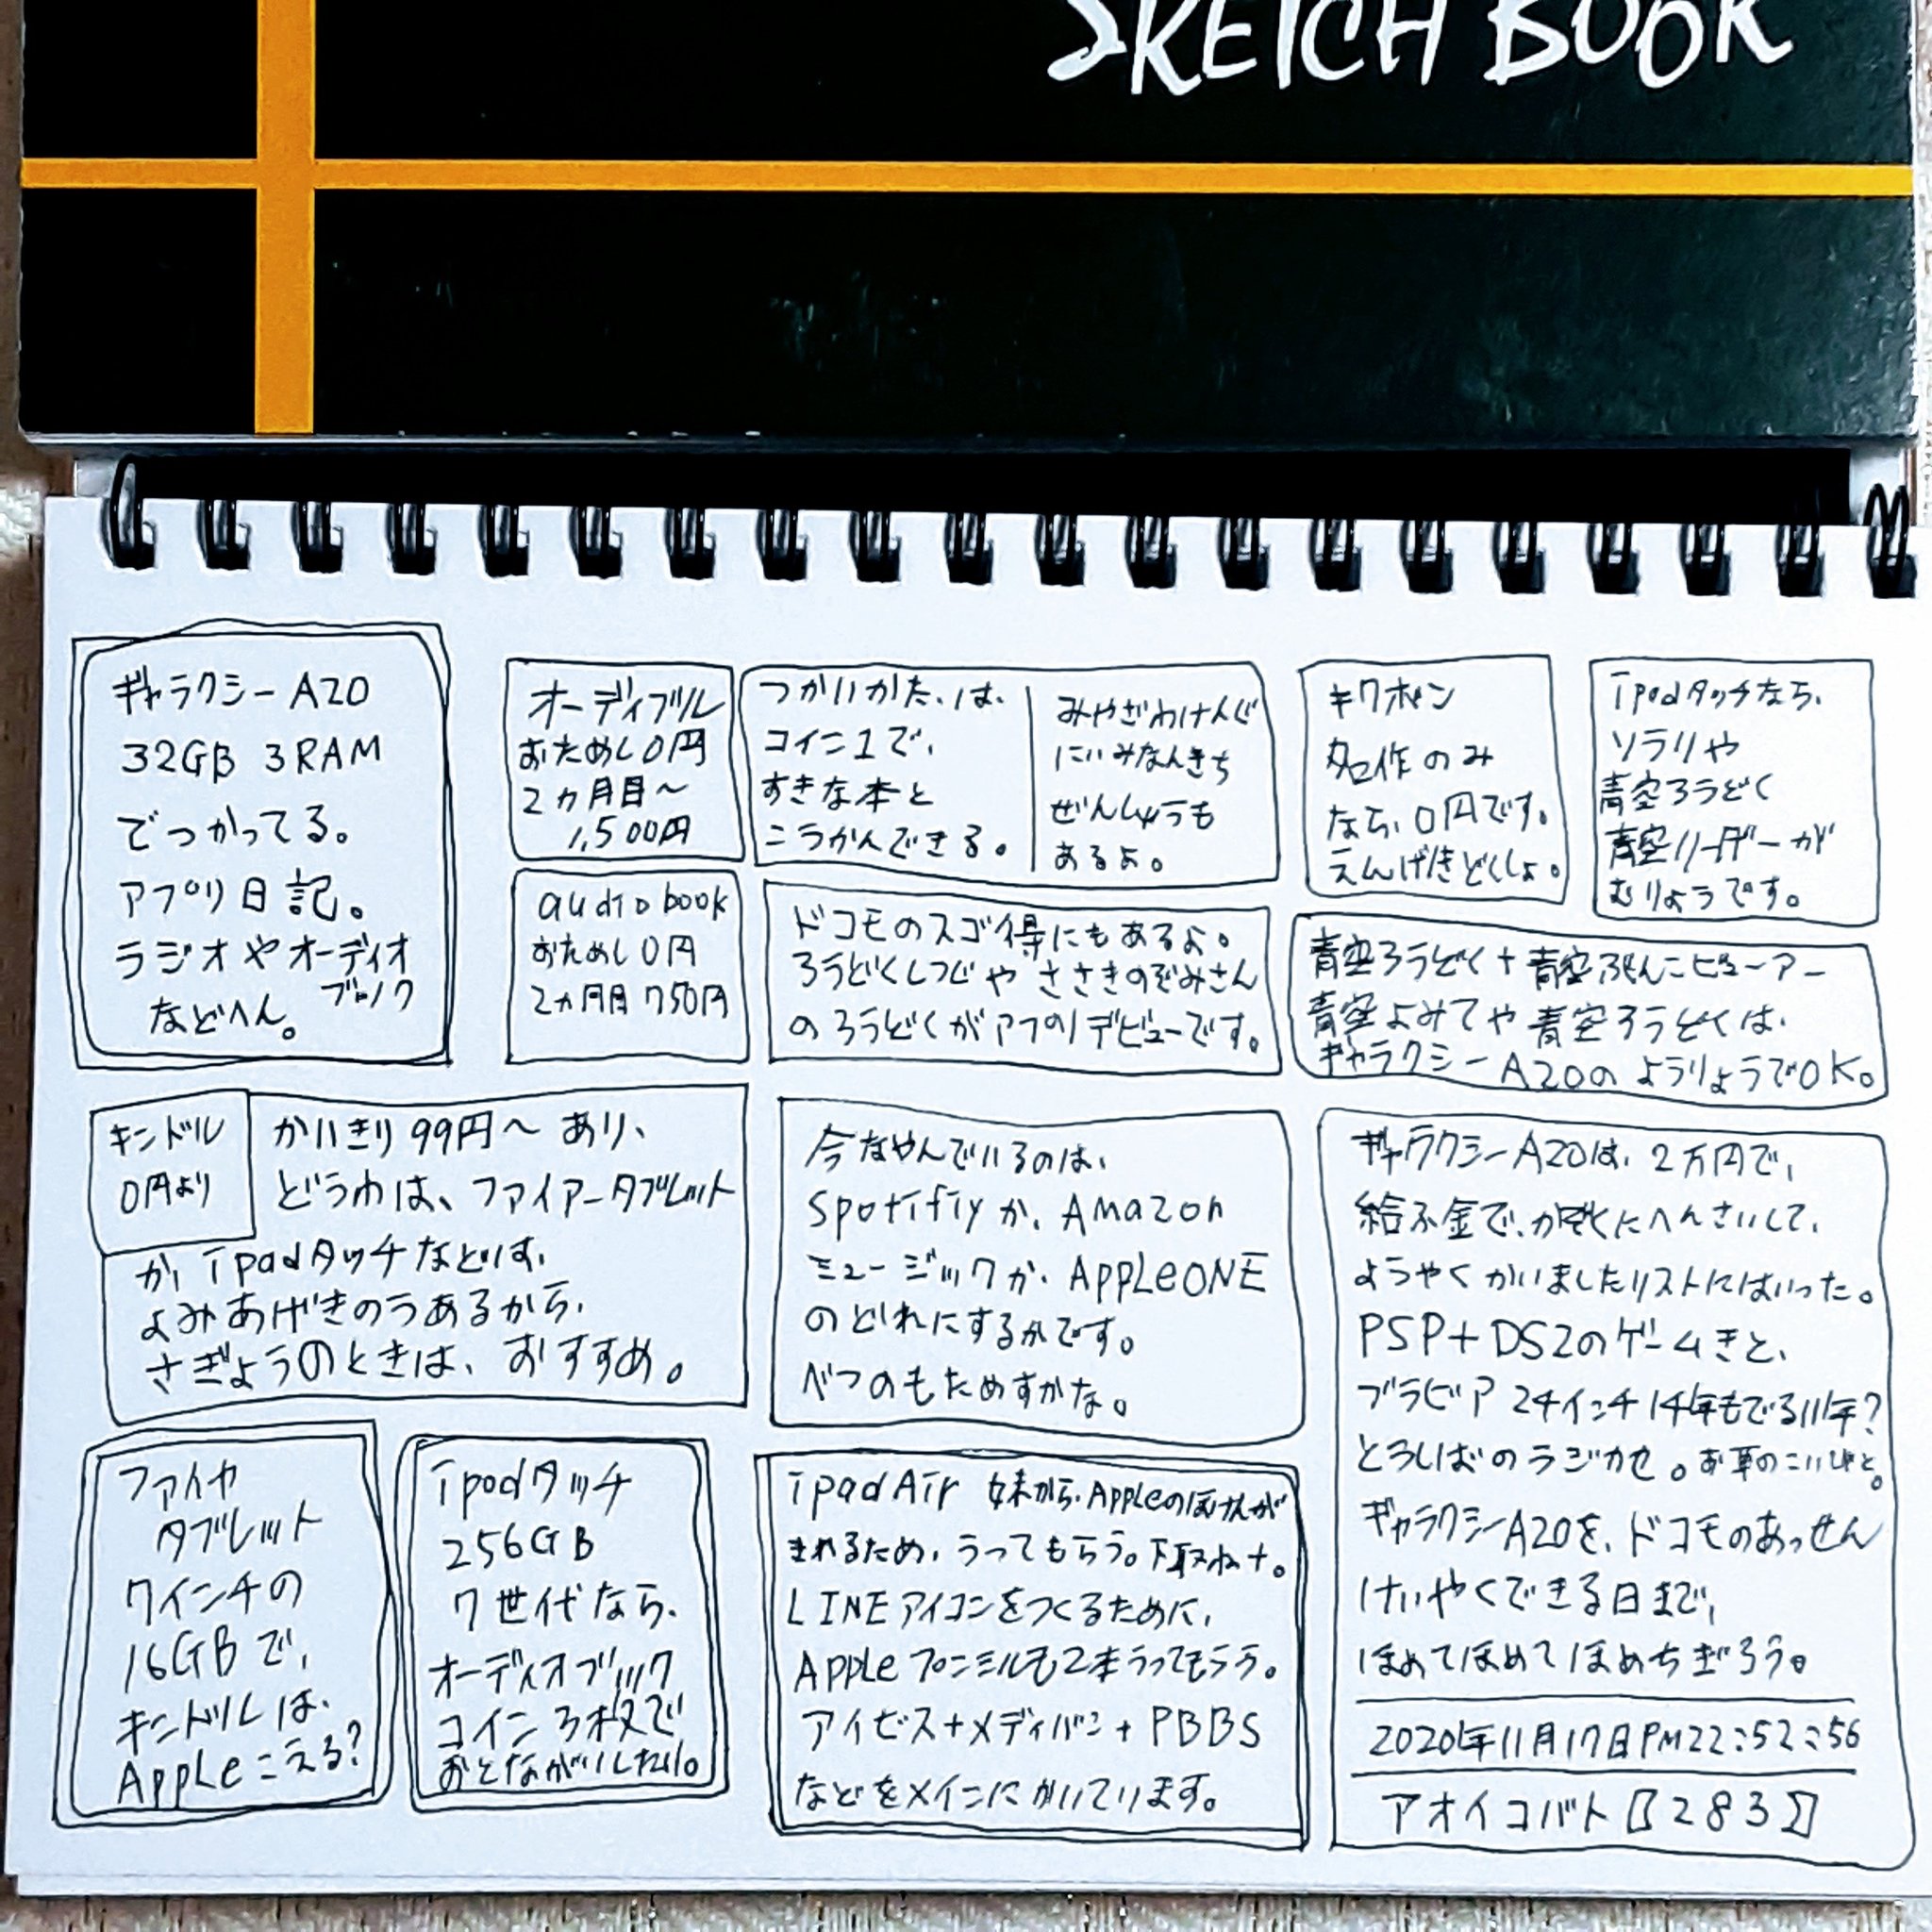 SKETCH BOOK
ギャラクシーA20
32GB 3RAM
でつかってる。
アプリ日記。
ラジオやオーディオ
ブック
などへん。
オーディブル
おためし0円
2カ月目〜
1,500円
つかいかた、は、
コイン1で、
すきな本と
こうかんできる。
みやざわけんじ
にいみなんきち
ぜんしゅうも
あるよ。
キクボン
名作のみ
なら、0円です。
えんげきどくしょ。
ipodタッチなら、
ソラリや
青空ろうどく
青空リーダーが
むりょうです。
audio book
おためし0円
2カ月目750円
ドコモのスゴ得にもあるよ。
ろうどくしつじや ささきのぞみさん
のろうどくがアプリデビューです。
青空ろうどく+青空ぶんこビューアー
青空よみてや青空ろうどくは、
ギャラクシーA20のようりょうでOK。
キンドル
0円より
かいきり99円〜あり、
どうわは、ファイアータブレット
か、ipadタッチなどは、
よみあげきのうあるから、
さぎょうのときは、おすすめ。
今なやんでいるのは、
Spotifiyか、Amazon
ミュージックか、AppLeONE
のどれにするかです。
べつのもためすかな。
ギャラクシーA20は、2万円で、
給ふ金で、かぞくにへんさいして、
ようやくかいましたリストにはいった。
PSP+DS2のゲームきと、
ブラビア24インチ14年もでる111年?
とうしばのラジカセ。お草のこいびと。
ギャラクシーA20を、ドコモのあっせん
けいやくできる日まで、
ほめてほめてほめちぎろう。
2020年11月17日PM22:52:56
アオイコバト【283】
ファイヤ
タブレット
7インチの
16GBで、
キンドルは、
AppLeこえる?
ipodタッチ
256GB
7世代なら、
オーディオブック
コイン3枚で
おとながいしたい。
ipadAir 妹から、AppLeのほけんが
きれるため、うってもらう。下取ねナ。
LINEアイコンをつくるために、
AppLeペンシルも2本うってもらう。
アイビス+メディバン+PBBS
などをメインにかいています。